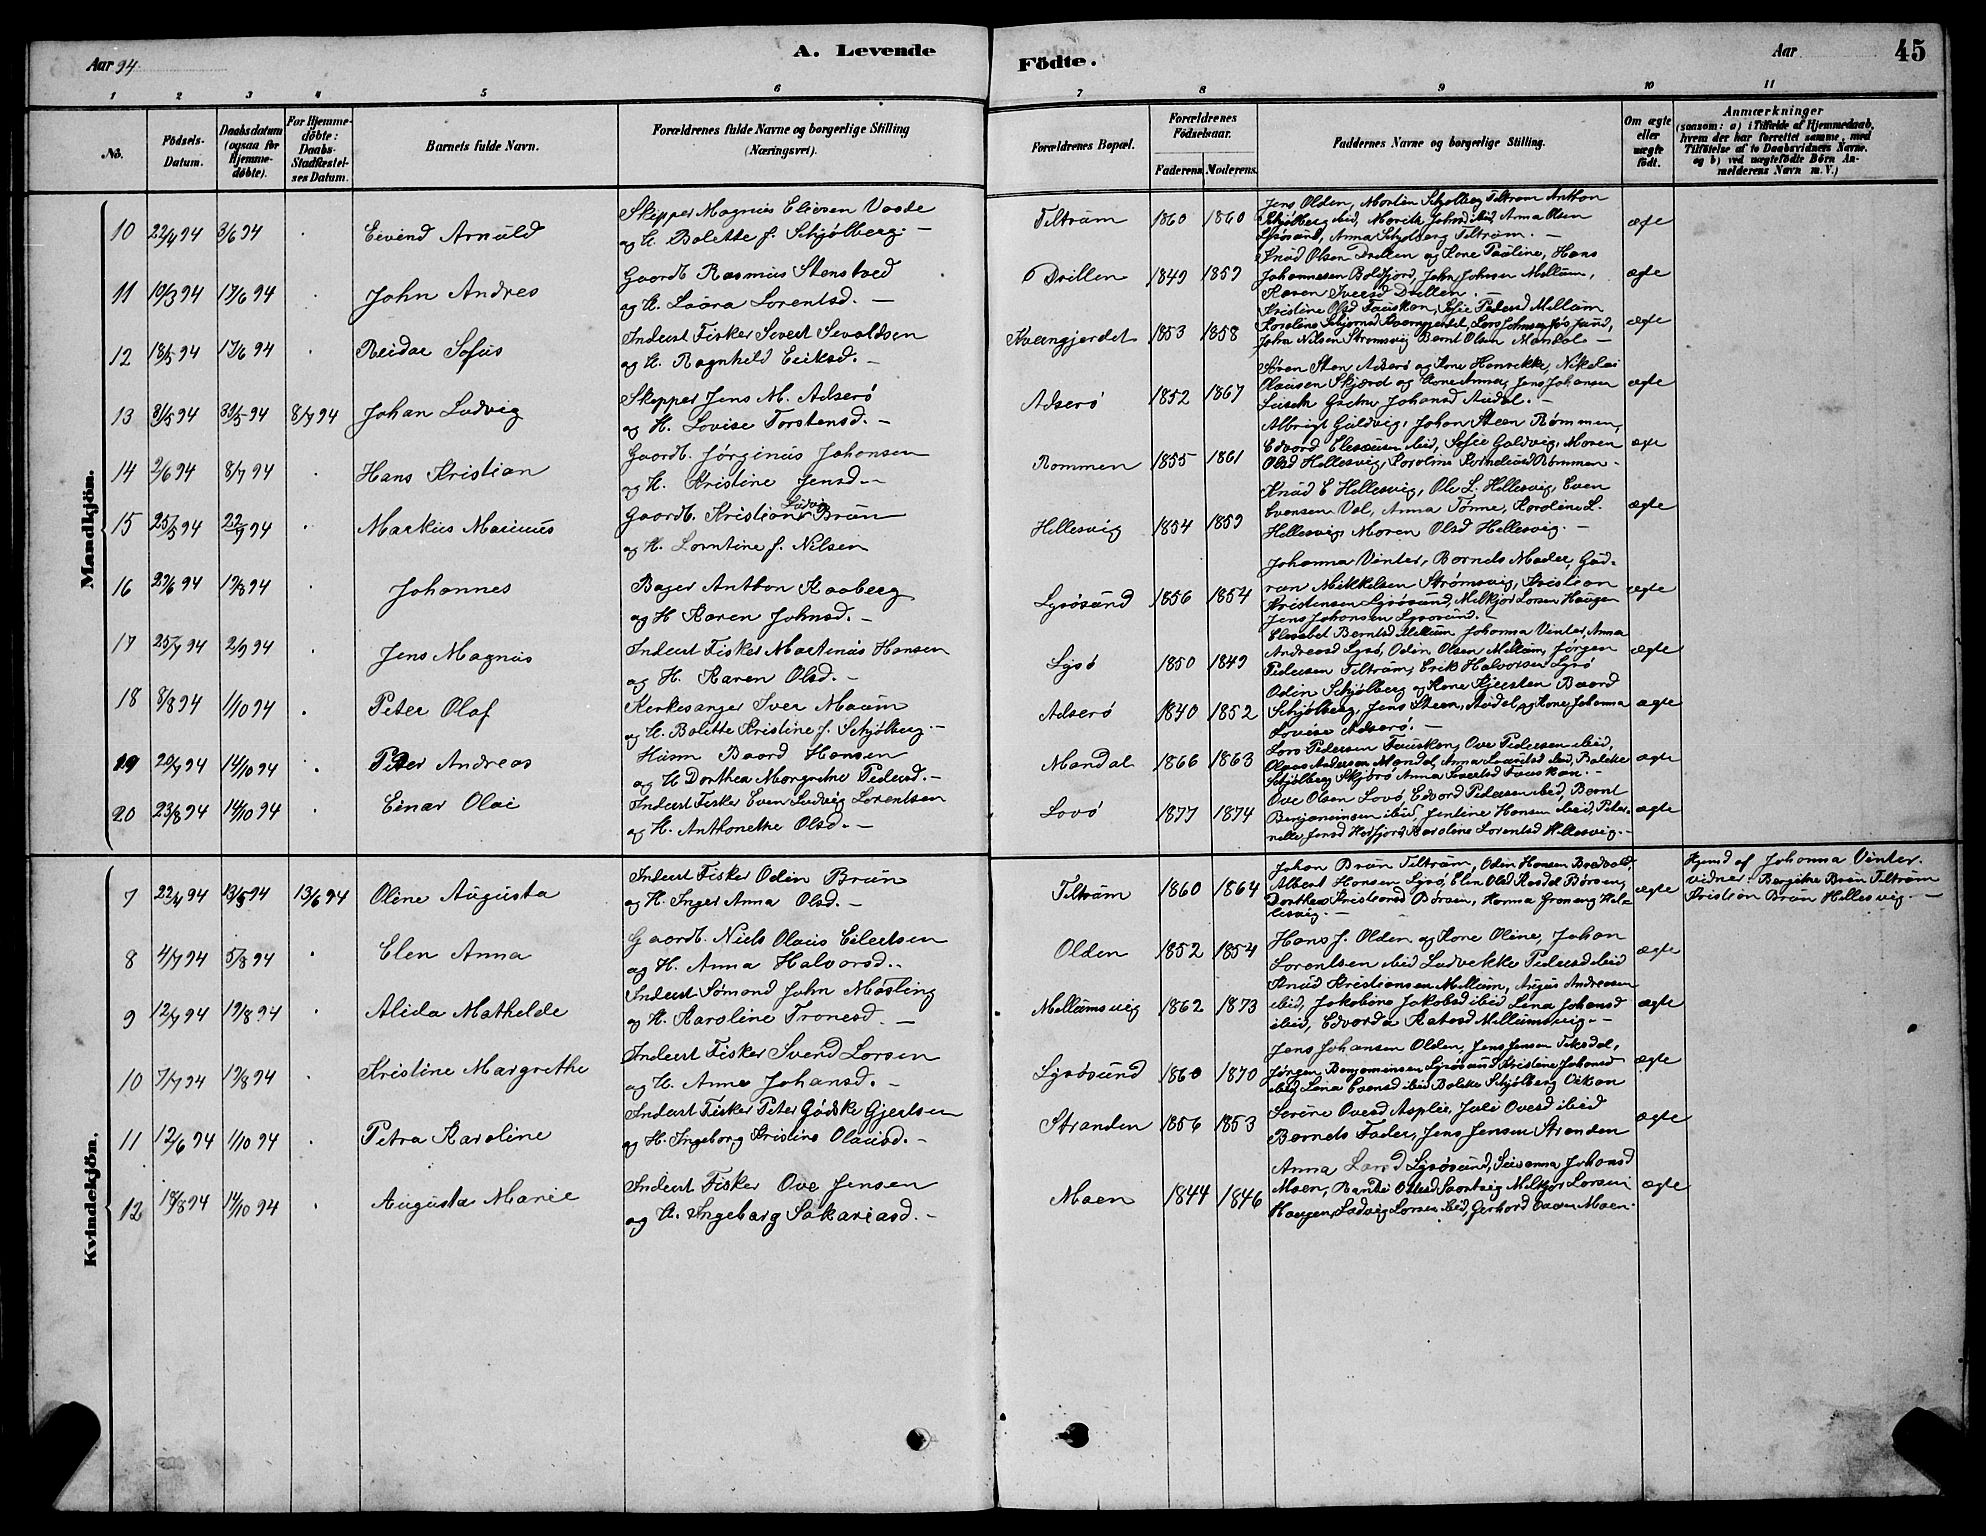 Aar 94
A. Levende
Födte.
Aar
45
1 2 3 4 5 6 7 8 9 10 11
No.
Födsels-Datum.
Daabsdatum (ogsaa for Hjemme-döbte).
For Hjemme-döbte: Daabs-Stadfæstel-ses Datum.
Barnets fulde Navn.
Forældrenes fulde Navne og borgerlige Stilling (Næringsvei).
Forældrenes Bopæl.
Forældrenes Födselsaar.
Faderens Moderens
Faddernes Navne og borgerlige Stilling.
Om ægte eller uægte födt.
Anmærkninger
(saasom: a) i Tilfælde af Hjemmedaab,
hvem der har forrettet samme, med
Tilföielse af to Daabsvidners Navne,
og b) ved uægtefödte Börn An-
melderens Navn m. V.)
Mandkjön.
10 22/4 94 3/6 94 Eivind Arnuld
Skipper Magnus Eliesen Vaade
og H. Bolette f. Schjølberg. —
Tiltrum 1860 1860
Jens Olden, Morten Schjølberg Tiltrum Anthon
Schjølberg ibid, Marith Johnsd ibid, Anna Olsen
Lysøsund, Anna Schjølberg Tiltrum. —
ægte
11 19/3 94 17/6 94 John Andres
Gaardb. Rasmus Stenstved
og H. Laura Lorentsd. —
Drillen 1849 1859
Knud Olsen Drillen og Kone Pauline, Hans
Johannesen Boldfjord, John Johnsen Mellum,
Karen Iversd Drillen. —
ægte
12 18/5 94 17/6 94 Reidar Sofus
Inderst Fisker Severt Sevaldsen
og H. Ragnhild Eriksd. —
Kværngjerdet 1853 1858
Kristine Olsd Fauskan, Sofie Pedersd Mellum
Karoline Schjærnes Kværngjerdet, Lars Johnsen
John Nilsen Strømsvig Bernt Olsen Mandal —
ægte
13 3/5 94 31/5 94 8/7 94 Johan Ludvig
Skipper Jens M. Adserø
og H. Lovise Torstensd. —
Adserø 1852 1867
Sten Adserø og Kone Henrikke, Nikolai
Olausen Skjærd og Kone Anna, Jens Johansen
Johansd Audal. —
ægte
14 2/6 94 8/7 94 Hans Kristian
Gaardb. Jørginus Johansen
og H. Kristine Jensd. —
Rømmen 1855 1861
Albrigt Guldvig, Johan Steen Rømmen,
Edvard Eliesen ibid, Sofie Guldvig, Maren
Olsd Hellesvig, Karoline Korneliusd Rømmen —
ægte
15 25/5 94 22/7 94 Markus Marinus
Gaardb. Kristian Ludvig Brun
og H. Lorntine f. Nilsen
Hellesvig 1854 1859
Knud E Hellesvig, Ole L. Hellesvig, Even
Evensen Val, Anna Tønne, Karoline L.
Hellesvig, Maren Olsd Hellesvig. —
ægte
16 29/6 94 19/8 94 Johannes
Bager Anthon Kaaberg
og H Karen Johnsd. —
Lysøsund 1856 1854
Johanna Vinter, Barnets Moder, Gud-
run Mikkelsen Strømsvig, Kristian
Kristensen Lysøsund, Melkjør Larsen Haugen
Jens Johansen Lysøsund. —
ægte
17 25/7 94 2/9 94 Jens Magnus
Inderst Fisker Martinus Hansen
og H. Karen Olsd. —
Lysø 1850 1849
Elesabet Berntsd Mellum Johanna Vinter, Anna
Andreasd Lysø, Odin Olsen Mellum, Jørgen
Pedersen Tiltrum, Erik Halvorsen Lysø
ægte
18 8/8 94 1/10 94 Peter Olaf
Kirkesanger Iver Maum
og H. Bolette Kristine f. Schjølberg. —
Adserø 1840 1852
Odin Schjølberg og Kone Kjersten Baard
Schjølberg, Jens Steen, Audal, og Kone Johanna
Lovise Adserø. —
ægte
19 20/7 94 14/10 94 Peter Andreas
Husm Baard Hansen
og H Dorthea Margrethe Pedersd. —
Mandal 1866 1863
Lars Pedersen Fauskan, Ove Pedersen ibid,
Olaus Andersen Mandal, Anna Lauritsd ibid, Bolette
Schjølberg Skjærø Anna Sivertsd Fauskan. —
ægte
20 23/8 94 14/10 94 Einar Olai
Inderst Fisker Even Ludvig Lorentsen
og H. Anthonette Olsd. —
Lovø 1877 1874
Ove Olsen Lovø, Edvard Pedersen ibid, Bernt
Benjaminsen ibid, Jentine Hansen ibid, Peter-
nelle Jensd Hosfjord, Karoline Lorentsd Hellesvig. —
ægte
Kvindekjön.
7 22/4 94 13/5 94 13/6 94 Oline Augusta
Inderst Fisker Odin Brun
og H. Inger Anna Olsd. —
Tiltrum 1860 1864
Johan Brun Tiltrum, Odin Hansen Bredvold,
Albert Hansen Lysø, Elen Olsd Børsen,
Dorthea Kristiansd Børsen, Hanna Grøneng Hel-
lesvig. —
ægte
Hjemd af Johanna Vinter.
vidner: Bergitte Brun Tiltrum
Kristian Brun Hellesvig. —
8 4/7 94 5/8 94 Elen Anna
Gaardb. Niels Olaus Eilertsen
og H. Anna Halvorsd. —
Olden 1852 1854
Hans J. Olden og Kone Oline, Johan
Lorentsen ibid Ludvekke Pedersd ibid
ægte
9 12/7 94 19/8 94 Alida Mathilde
Inderst Sømand John Møsling
og H. Karoline Tronesd. —
Mellumsvig 1862 1873
Knud Kristiansen Mellum, August Andreasen
ibid, Jakobine Jakobsd ibid Lina Johansd
ibid, Edvarda Mellumsvig. —
ægte
10 7/7 94 19/8 94 Kristine Margrethe
Inderst Fisker Svend Larsen
og H. Anne Johansd. —
Lysøsund 1860 1870
Jens Johansen Olden, Jens Jensen Teksdal,
Jørgen Benjaminsen Lysøsund Kristine Johansd
ibid Lina Evensd ibid Bolette Schjølberg Vikan
ægte
11 12/6 94 1/10 94 Petra Karoline
Inderst Fisker Peter Gødsk Gjertsen
og H. Ingeborg Kristine Olausd. —
Stranden 1856 1853
Serine Ovesd Asplie, Juli Ovesd ibid
Barnets Fader, Jens Jensen Stranden
ægte
12 18/8 94 14/10 94 Augusta Marie
Inderst Fisker Ove Jensen
og H. Ingeborg Sakariasd. —
Moen 1844 1846
Anna Larsd Lysøsund, Susanna Johansd
Moen, Olsd Melkjør Larsen
Haugen, Ludvig Larsen ibid, Gerhard Moen.
ægte